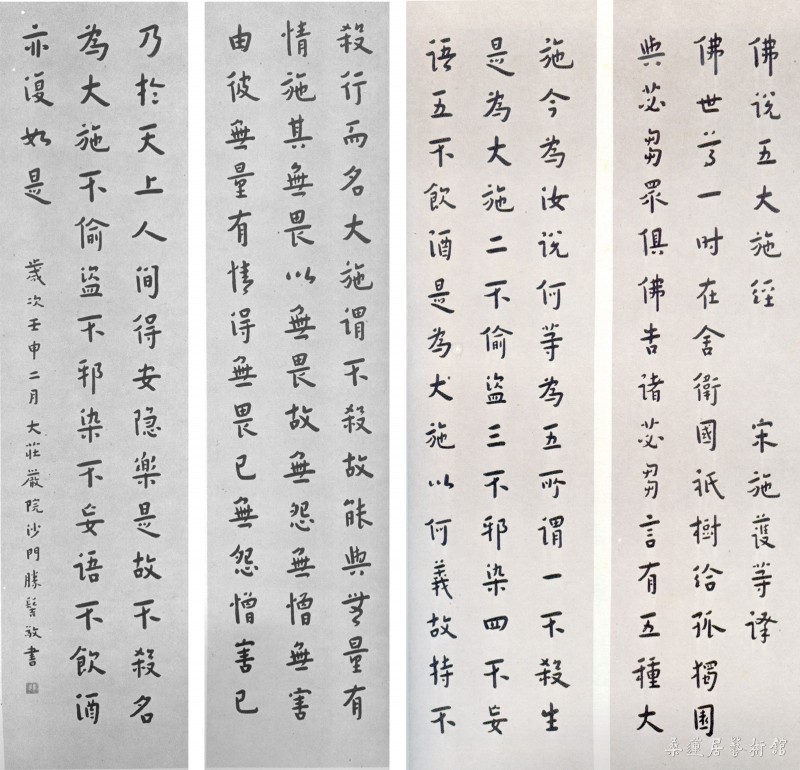 佛说五大施经 宋施護等译
佛世尊一时在舍衛國祇樹给孤獨園
與苾芻眾俱佛告诸苾芻言有五種大
施今為汝说何等為五所谓一不殺生
是為大施二不偷盗三不邪染四不妄
语五不飲酒是為大施以何義故持不
殺行而名大施谓不殺故能與無量有
情施其無畏以無畏故無怨無憎無害
由彼無量有情得無畏已無怨憎害已
乃於天上人间得安隐樂是故不殺名
為大施不偷盗不邪染不妄语不飲酒
亦復如是 歲次壬申二月大莊嚴院沙門勝髻敬書
桑蓮居藝術館